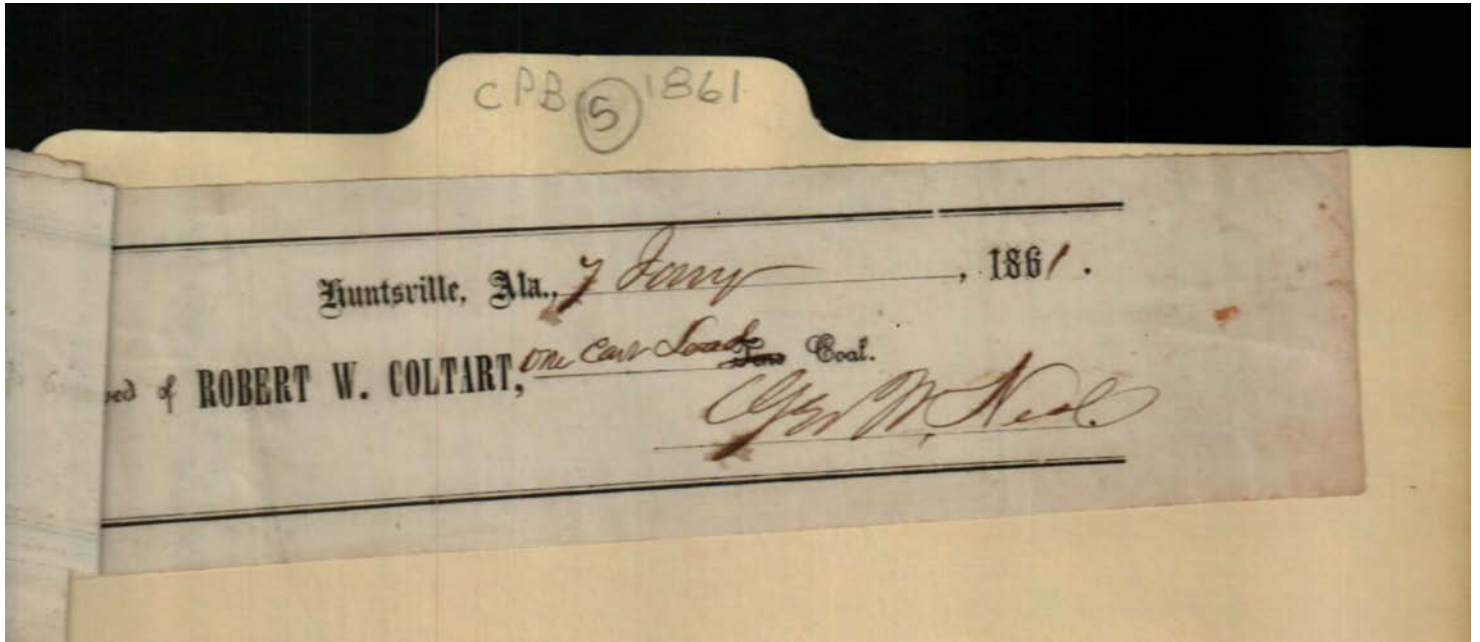 CPB 5 1861
Huntsville, Ala., 7 Jany , 1861.
ved of ROBERT W. COLTART, One Car Load Tons Coal.
Geo W. Neal